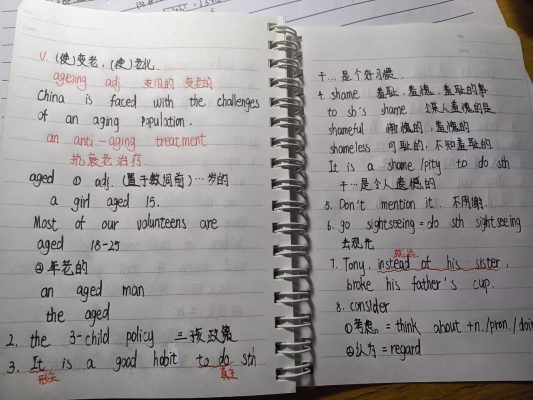 v. (使)变老，(使)老化.
ageing adj. 变旧的 变老的
China is faced with the challenges
of an aging population.
an anti-aging treatment
抗衰老治疗
aged ① adj. (置于数词前) …岁的
a girl aged 15.
Most of our volunteers are
aged 18-25
②年老的
an aged man
the aged
2. the 3-child policy 三孩政策
3. It is a good habit to do sth
形主 真主
干…是个好习惯.
4. shame 羞耻，羞愧，羞耻的事
to sb's shame 令某人羞愧的是
shameful 惭愧的，羞愧的
shameless 可耻的，不知羞耻的
It is a shame/pity to do sth
干…是个人遗憾的
5. Don't mention it. 不用谢.
6. go sightseeing = do sth sightseeing
去观光
7. Tony, instead of his sister,
broke his father's cup.
8. consider
①考虑 = think about +n./pron./doin
②认为 = regard